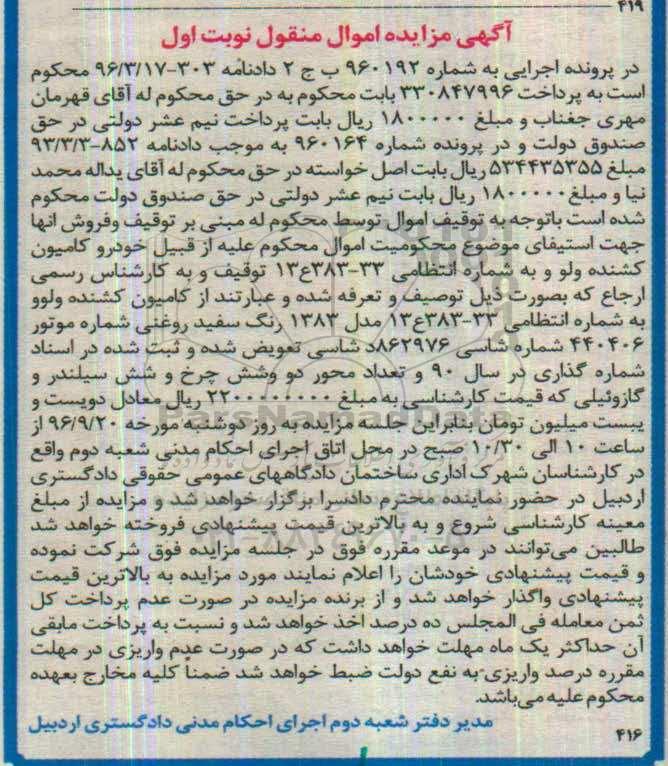 ۴۱۹
آگهی مزایده اموال منقول نوبت اول
در پرونده اجرایی به شماره ۹۶۰۱۹۲ ب ج ۲ دادنامه ۳۰۳-۹۶/۳/۱۷ محکوم
است به پرداخت ۳۳۰۸۴۷۹۹۶ بابت محکوم به در حق محکوم له آقای قهرمان
مهری جغناب و مبلغ ۱۸۰۰۰۰۰ ریال بابت پرداخت نیم عشر دولتی در حق
صندوق دولت و در پرونده شماره ۹۶۰۱۶۴ به موجب دادنامه ۸۵۲-۹۳/۳/۳
مبلغ ۵۳۴۴۳۵۳۵۵ ریال بابت اصل خواسته در حق محکوم له آقای یداله محمد
نیا و مبلغ ۱۸۰۰۰۰۰ ریال بابت نیم عشر دولتی در حق صندوق دولت محکوم
شده است باتوجه به توقیف اموال توسط محکوم له مبنی بر توقیف وفروش انها
جهت استیفای موضوع محکومیت اموال محکوم علیه از قبیل خودرو کامیون
کشنده ولو و به شماره انتظامی ۳۳-۳۸۳ع۱۳ توقیف و به کارشناس رسمی
ارجاع که بصورت ذیل توصیف و تعرفه شده و عبارتند از کامیون کشنده ولوو
به شماره انتظامی ۳۳-۳۸۳ع۱۳ مدل ۱۳۸۳ رنگ سفید روغنی شماره موتور
۴۴۰۴۰۶ شماره شاسی ۸۶۲۹۷۶د شاسی تعویض شده و ثبت شده در اسناد
شماره گذاری در سال ۹۰ و تعداد محور دو وشش چرخ و شش سیلندر و
گازوئیلی که قیمت کارشناسی به مبلغ ۲۲۰۰۰۰۰۰۰۰ ریال معادل دویست و
بیست میلیون تومان بنابراین جلسه مزایده به روز دوشنبه مورخه ۹۶/۹/۲۰ از
ساعت ۱۰ الی ۱۰/۳۰ صبح در محل اتاق اجرای احکام مدنی شعبه دوم واقع
در کارشناسان شهرک اداری ساختمان دادگاههای عمومی حقوقی دادگستری
اردبیل در حضور نماینده محترم دادسرا برگزار خواهد شد و مزایده از مبلغ
معینه کارشناسی شروع و به بالاترین قیمت پیشنهادی فروخته خواهد شد
طالبین می‌توانند در موعد مقرره فوق در جلسه مزایده فوق شرکت نموده
و قیمت پیشنهادی خودشان را اعلام نمایند مورد مزایده به بالاترین قیمت
پیشنهادی واگذار خواهد شد و از برنده مزایده در صورت عدم پرداخت کل
ثمن معامله فی المجلس ده درصد اخذ خواهد شد و نسبت به پرداخت مابقی
آن حداکثر یک ماه مهلت خواهد داشت که در صورت عدم واریزی در مهلت
مقرره درصد واریزی به نفع دولت ضبط خواهد شد ضمناً کلیه مخارج بعهده
محکوم علیه می‌باشد.
مدیر دفتر شعبه دوم اجرای احکام مدنی دادگستری اردبیل
۴۱۶
ParsNamadData